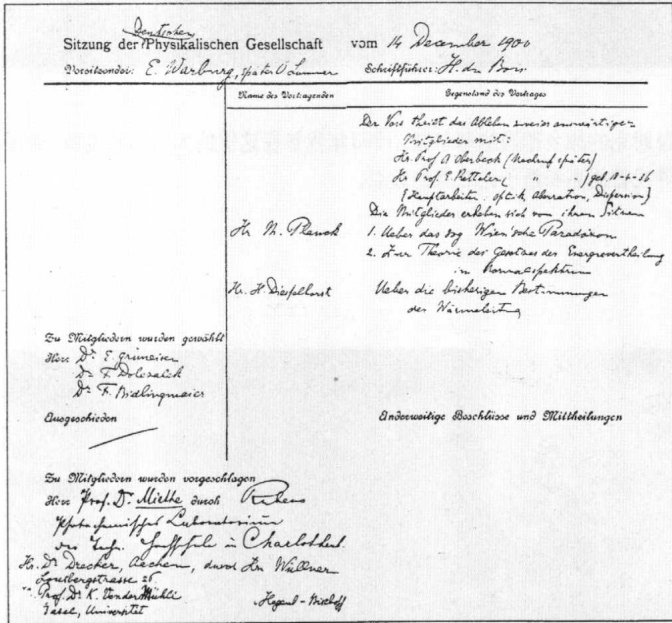 Deutschen
Sitzung der Physikalischen Gesellschaft vom 14 December 1900
Vorsitzender: E. Warburg, später O Lummer Schriftführer: H. du Bois
Name des Vortragenden Gegenstand des Vortrages
Der Vors theilt das Ableben zweier auswärtiger
Mitglieder mit:
Hr. Prof A Oberbeck (Nachruf später)
Hr Prof. E Ketteler ( " - )
(Hauptarbeiten: Optik, Aberration, Dispersion)
Die Mitglieder erheben sich von ihren Sitzen
Hr. M. Planck 1. Ueber das sog Wien'sche Paradoxon
2. Zur Theorie des Gesetzes der Energievertheilung
im Normalspektrum
Hr. H. Diesselhorst Ueber die bisherigen Bestimmungen
der Wärmeleitung
Zu Mitgliedern wurden gewählt
Herr Dr. E. Grüneisen
Dr F. Dolezalek
Dr F. Bidlingmaier
Ausgeschieden Anderweitige Beschlüsse und Mittheilungen
Zu Mitgliedern wurden vorgeschlagen
Herr Prof. Dr. Miethe durch Rubens
Photochemisches Laboratorium
der Techn. Hochschule in Charlottenb.
Hr. Dr Drecker, Aachen, durch Hr. Wüllner
Lousbergstrasse 26.
" Prof. Dr. K. VonderMühll Hagenb-Bischoff
Basel, Universität